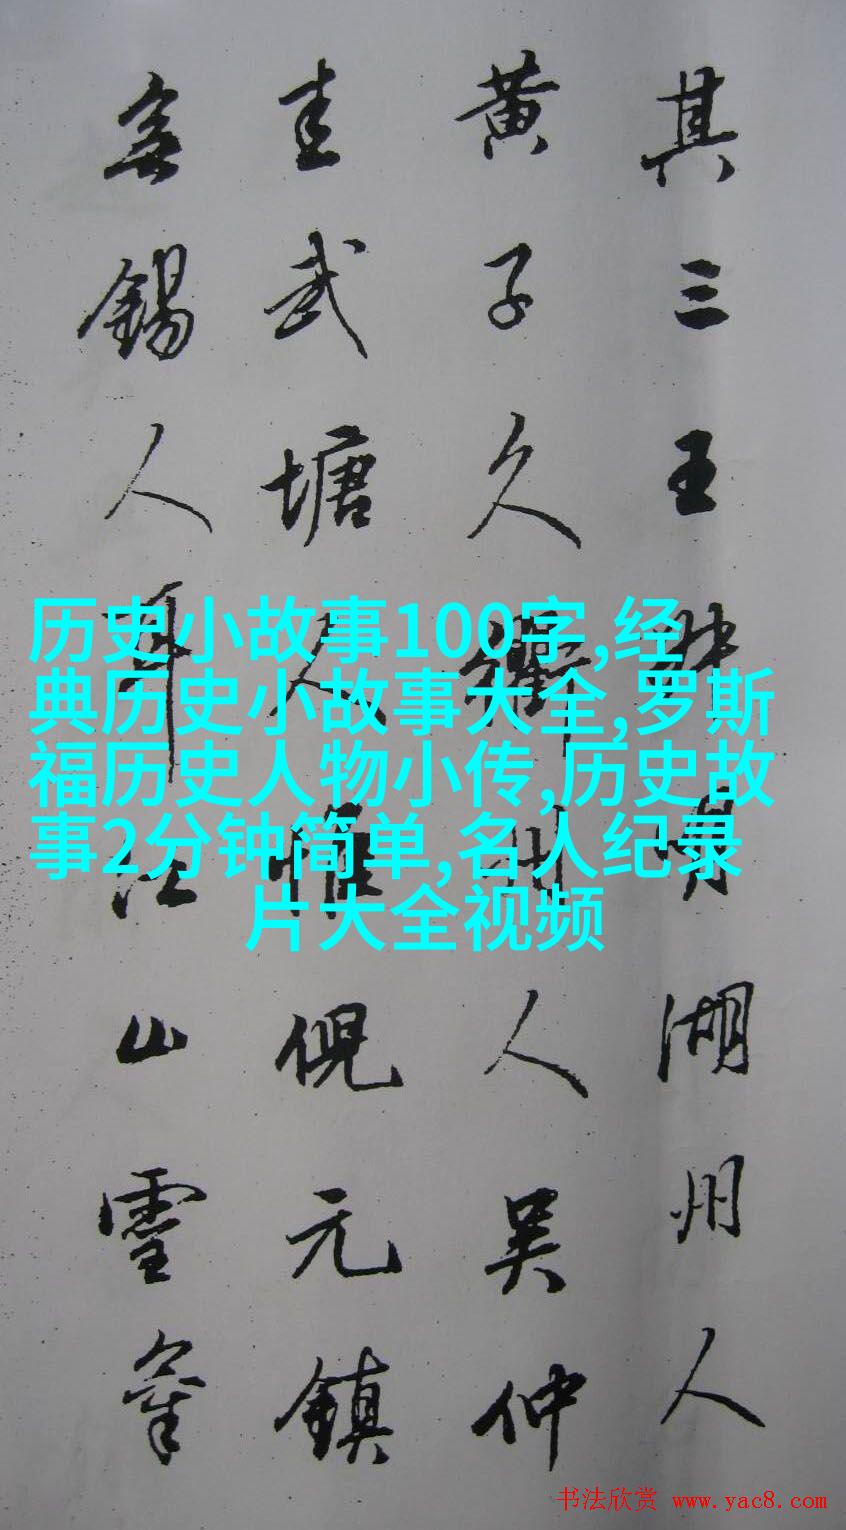 其三王叔明湖州人
黃子久衢州人吳仲
圭武塘人惟倪元鎮
無錫人耳江山靈氣
历史小故事100字,经
典历史小故事大全,罗斯
福历史人物小传,历史故
事2分钟简单,名人纪录
片大全视频
书法欣赏 www.yac8.com